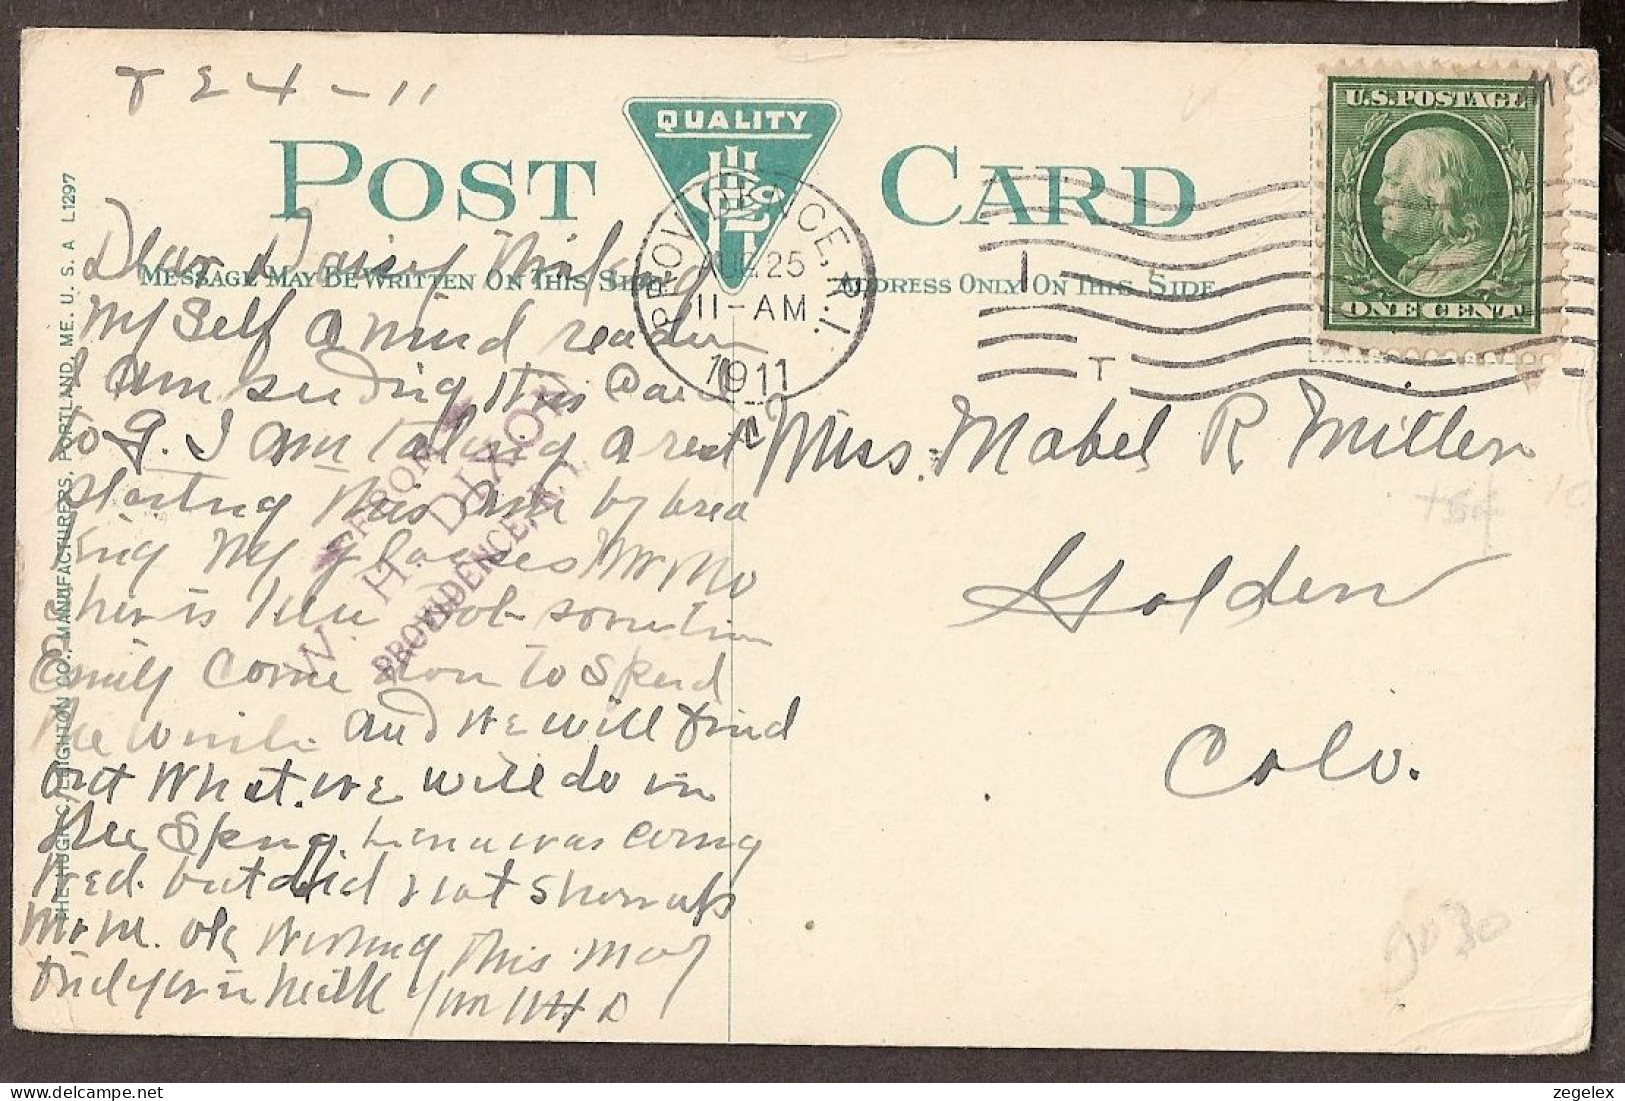 7 24-11
QUALITY
POST CARD
U.S. POSTAGE
ONE CENT
MESSAGE MAY BE WRITTEN ON THIS SIDE
ADDRESS ONLY ON THIS SIDE
PROVIDENCE, R.I.
JUL 25
11-AM
1911
T
THE HUGH C. LEIGHTON CO., MANUFACTURERS, PORTLAND, ME. U. S. A L1297
FROM
W. H. DIXON
PROVIDENCE, R.I.
Dear Daisy Thinking
My Self a mind reader
I am sending this Card
to G. I am taking a rest
starting this Am by brea
king My glasses Mr Mo
sher is here
Emily Come Home to Spend
the and we will find
out What. we will do in
the Spring. Lena was coming
Wed. but did not show up
Mr M. ok Wishing This May
find you in health W H D
Miss. Mabel R Miller
Golden
Colo.
zegelex